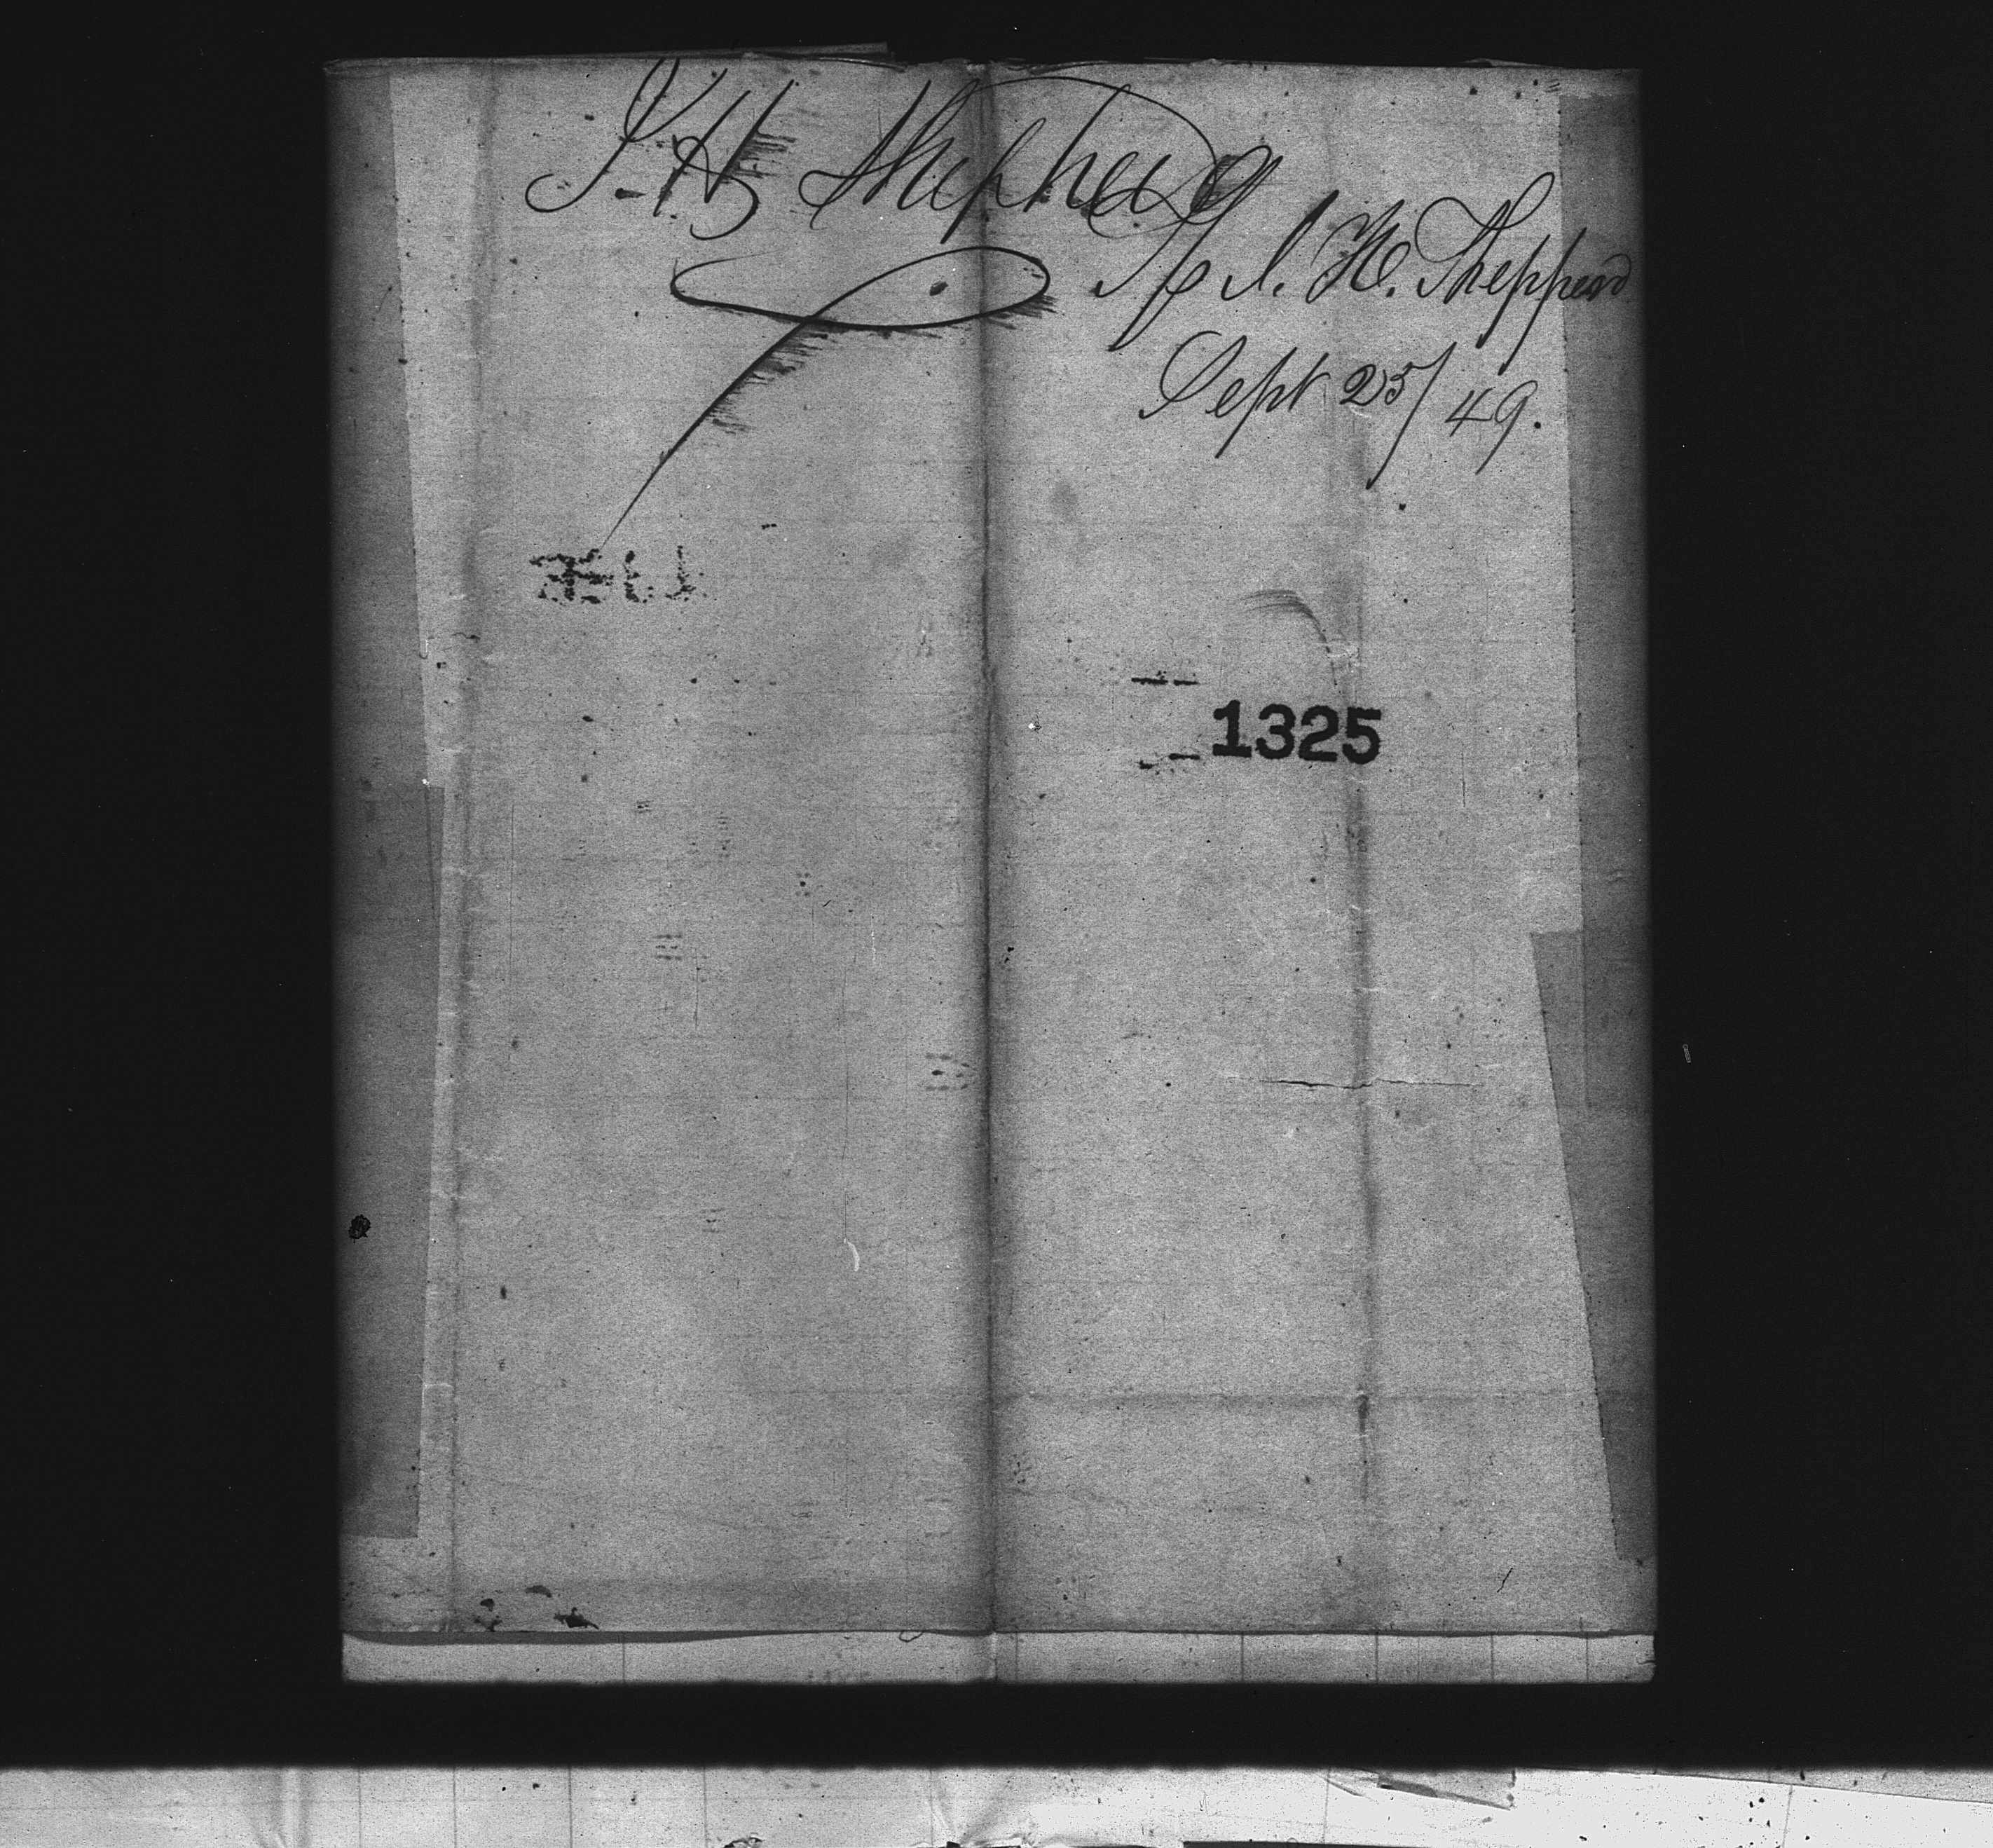 J. H. Shepherd
J. H. Shepperd
Sept 25/49.
1325